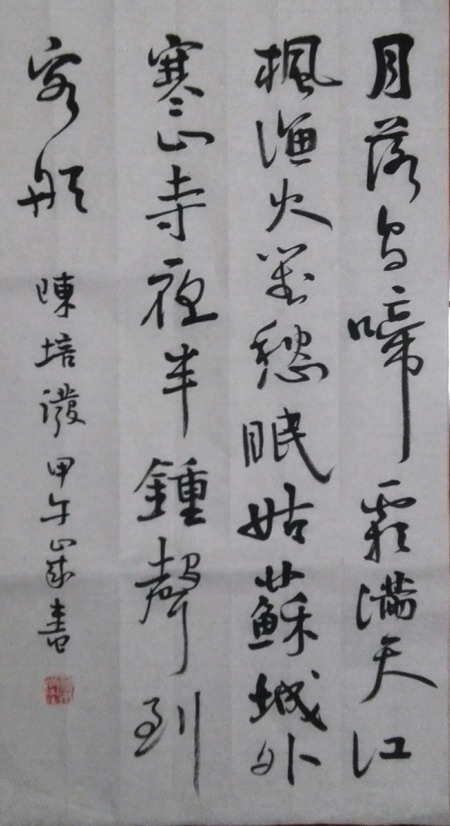 月落烏啼霜滿天江
楓漁火對愁眠姑蘇城外
寒山寺夜半鍾聲到
客船
陳培潑甲午歲書